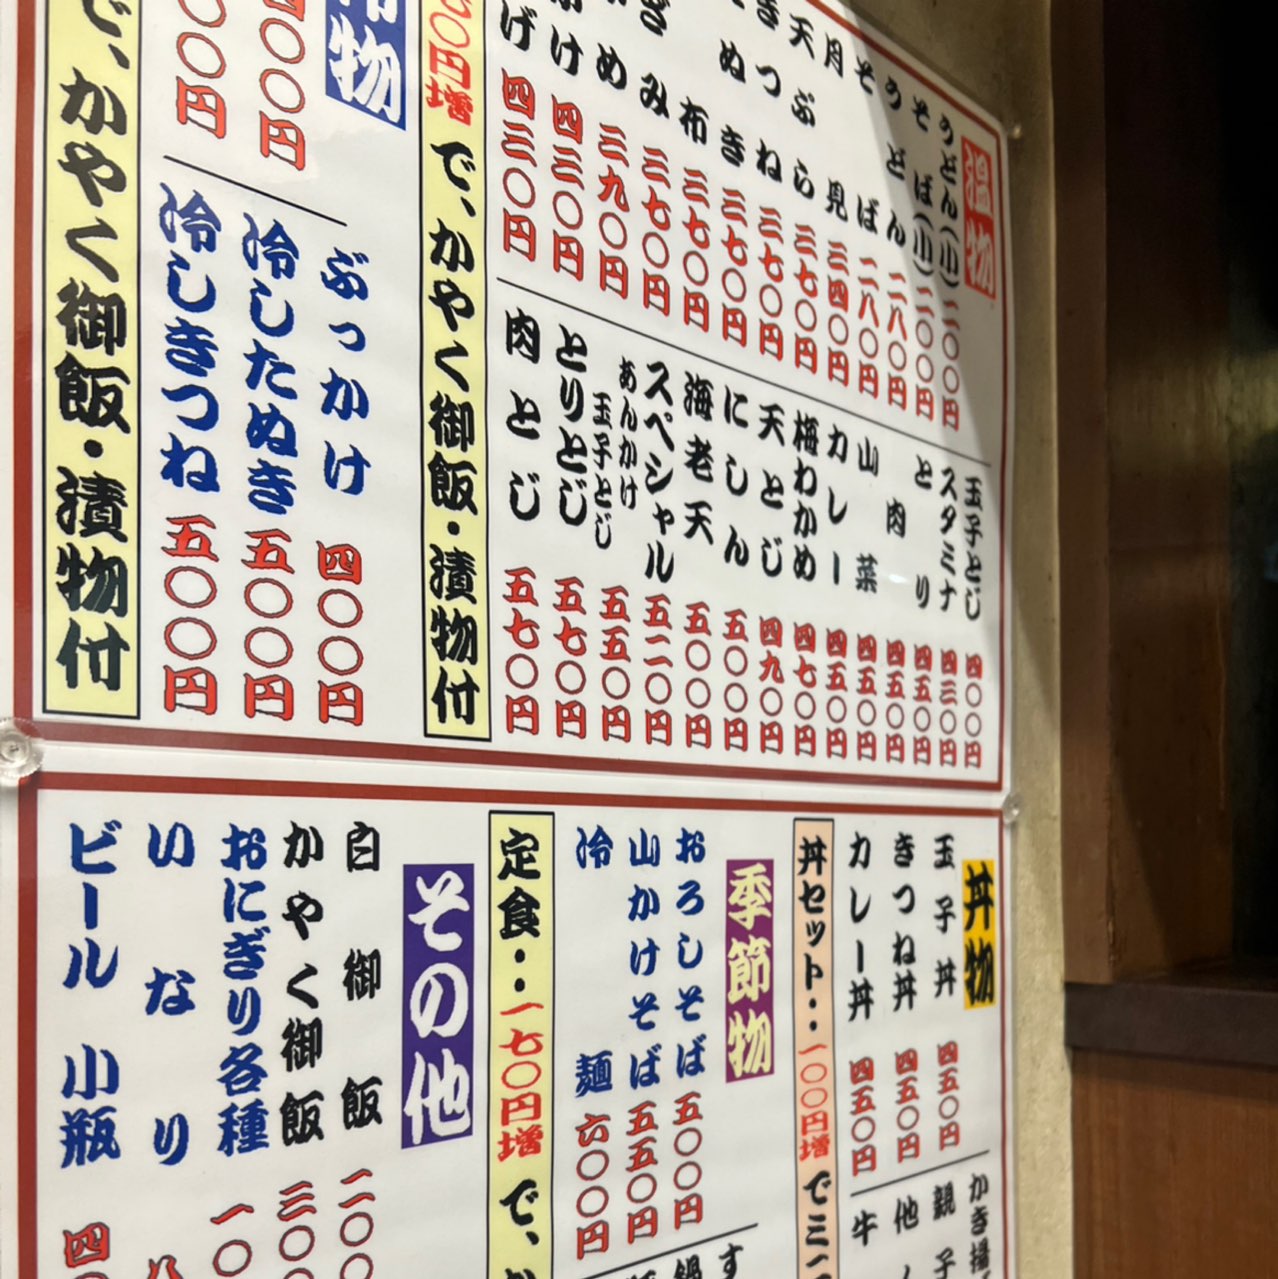 温物
うどん(小) 二〇〇円
そば(小) 二〇〇円
うどん 二八〇円
そば 二八〇円
月見 三四〇円
天ぷら 三七〇円
きつね 三七〇円
ぬき 三七〇円
布 三七〇円
み 三七〇円
め 三九〇円
け 四三〇円
げ 四三〇円
玉子とじ 四〇〇円
スタミナ 四三〇円
とり 四五〇円
肉 四五〇円
山菜 四五〇円
カレー 四五〇円
梅わかめ 四七〇円
天とじ 四九〇円
にしん 五〇〇円
海老天 五〇〇円
スペシャル 五二〇円
あんかけ
玉子とじ 五五〇円
とりとじ 五七〇円
肉とじ 五七〇円
〇円増で、かやく御飯・漬物付
物
〇〇円
〇〇円
ぶっかけ 四〇〇円
冷したぬき 五〇〇円
冷しきつね 五〇〇円
で、かやく御飯・漬物付
丼物
玉子丼 四五〇円
きつね丼 四五〇円
カレー丼 四五〇円
かき揚
親子
他
牛
丼セット・・一〇〇円増でミニ
季節物
おろしそば 五〇〇円
山かけそば 五五〇円
冷麺 六〇〇円
す
鍋
定食・・一七〇円増で、か
その他
白御飯 二〇〇
かやく御飯 三〇〇
おにぎり各種 一〇
いなり 八
ビール 小瓶 四